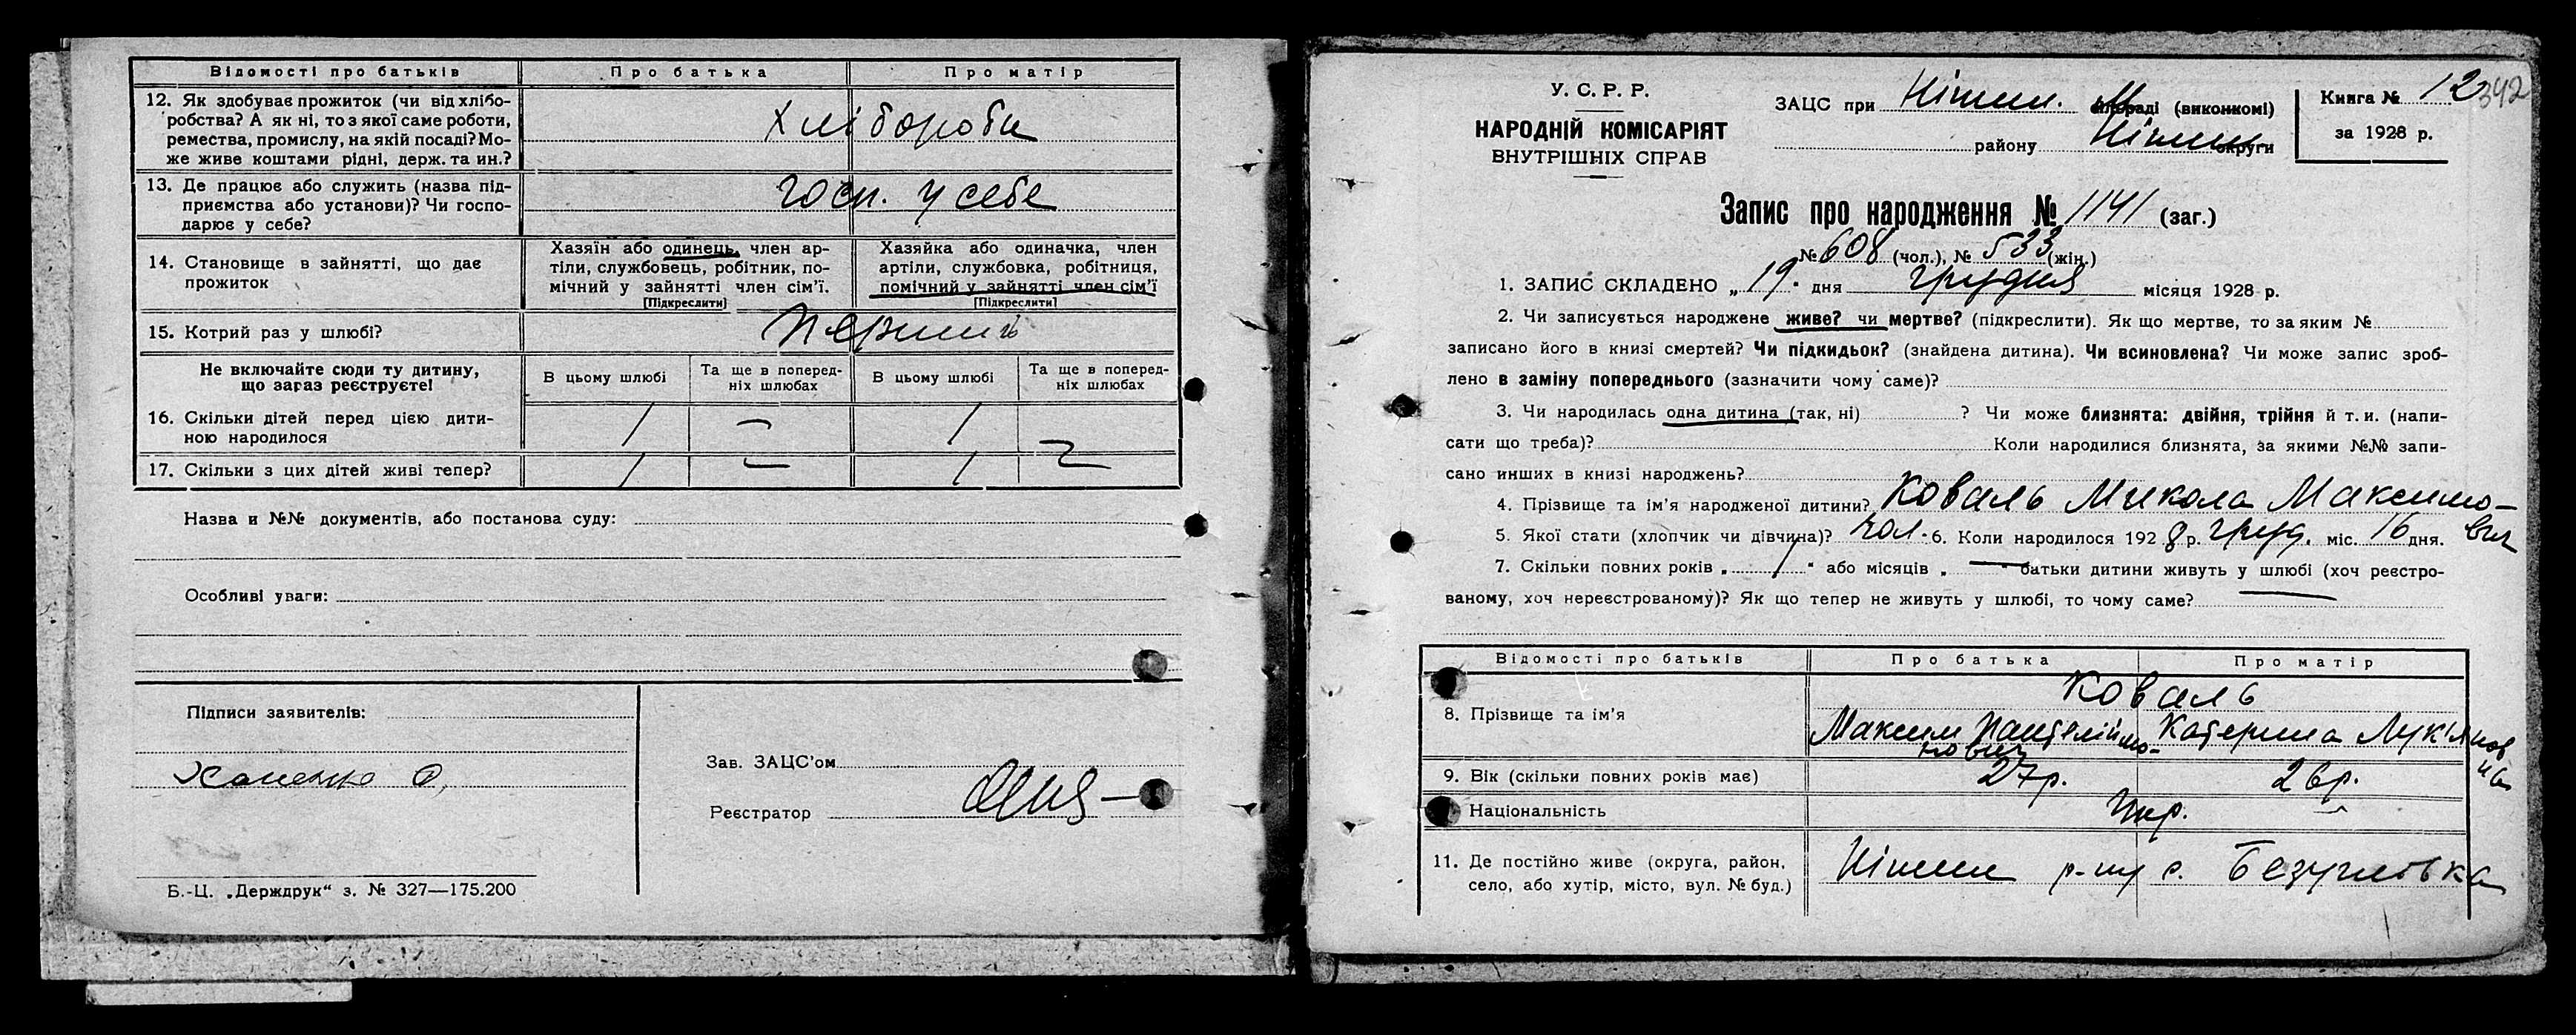 Відомості про батьків Про батька Про матір
12. Як здобуває прожиток (чи від хлібо-
робства? А як ні, то з якої саме роботи,
ремества, промислу, на якій посаді? Мо-
же живе коштами рідні, держ. та ин.?
Хлібороби
13. Де працює або служить (назва під-
приємства або установи)? Чи госпо-
дарює у себе?
госп. у себе
14. Становище в зайнятті, що дає
прожиток
Хазяїн або одинець, член ар-
тіли, службовець, робітник, по-
мічний у зайнятті член сім'ї.
[Підкреслити]
Хазяйка або одиначка, член
артіли, службовка, робітниця,
помічний у зайнятті член сім'ї
[Підкреслити]
15. Котрий раз у шлюбі?
Не включайте сюди ту дитину,
що зараз реєструєте!
В цьому шлюбі
Та ще в поперед-
ніх шлюбах
В цьому шлюбі
Та ще в поперед-
ніх шлюбах
16. Скільки дітей перед цією дити-
ною народилося
1 — 1 —
17. Скільки з цих дітей живі тепер?
1 — 1 —
Назва и №№ документів, або постанова суду:
Особливі уваги:
Підписи заявителів:
Зав. ЗАЦС'ом
Реєстратор
Б.-Ц. „Держдрук“ з. № 327—175.200
У. С. Р. Р.
НАРОДНІЙ КОМІСАРІЯТ
ВНУТРІШНІХ СПРАВ
ЗАЦС при Ніжин. (виконкомі)
району Ніжин округи
Книга № 12
за 1928 р.
342
Запис про народження № 1141 (заг.)
№ 608 (чол.), № 533 (жін.)
1. ЗАПИС СКЛАДЕНО „19“ дня грудня місяця 1928 р.
2. Чи записується народжене живе? чи мертве? (підкреслити). Як що мертве, то за яким №
записано його в книзі смертей? Чи підкидьок? (знайдена дитина). Чи всиновлена? Чи може запис зроб-
лено в заміну попереднього (зазначити чому саме)?
3. Чи народилась одна дитина (так, ні) ? Чи може близнята: двійня, трійня й т. и. (напи-
сати що треба)? Коли народилися близнята, за якими №№ запи-
сано инших в книзі народжень?
4. Прізвище та ім'я народженої дитини? Коваль Микола Максимо-
вич
5. Якої стати (хлопчик чи дівчина)? Чол. 6. Коли народилося 1928 р. груд. міс. 16 дня.
7. Скільки повних років „1“ або місяців „—“ батьки дитини живуть у шлюбі (хоч реєстро-
ваному, хоч нереєстрованому)? Як що тепер не живуть у шлюбі, то чому саме? —
Відомості про батьків Про батька Про матір
8. Прізвище та ім'я
Коваль
Максим Пантелеймо-
нович
Катерина Лук'янов
на
9. Вік (скільки повних років має) 27р. 26р.
Національність Укр. —
11. Де постійно живе (округа, район,
село, або хутір, місто, вул. № буд.)
Ніжин р-ну с. Безуглівка